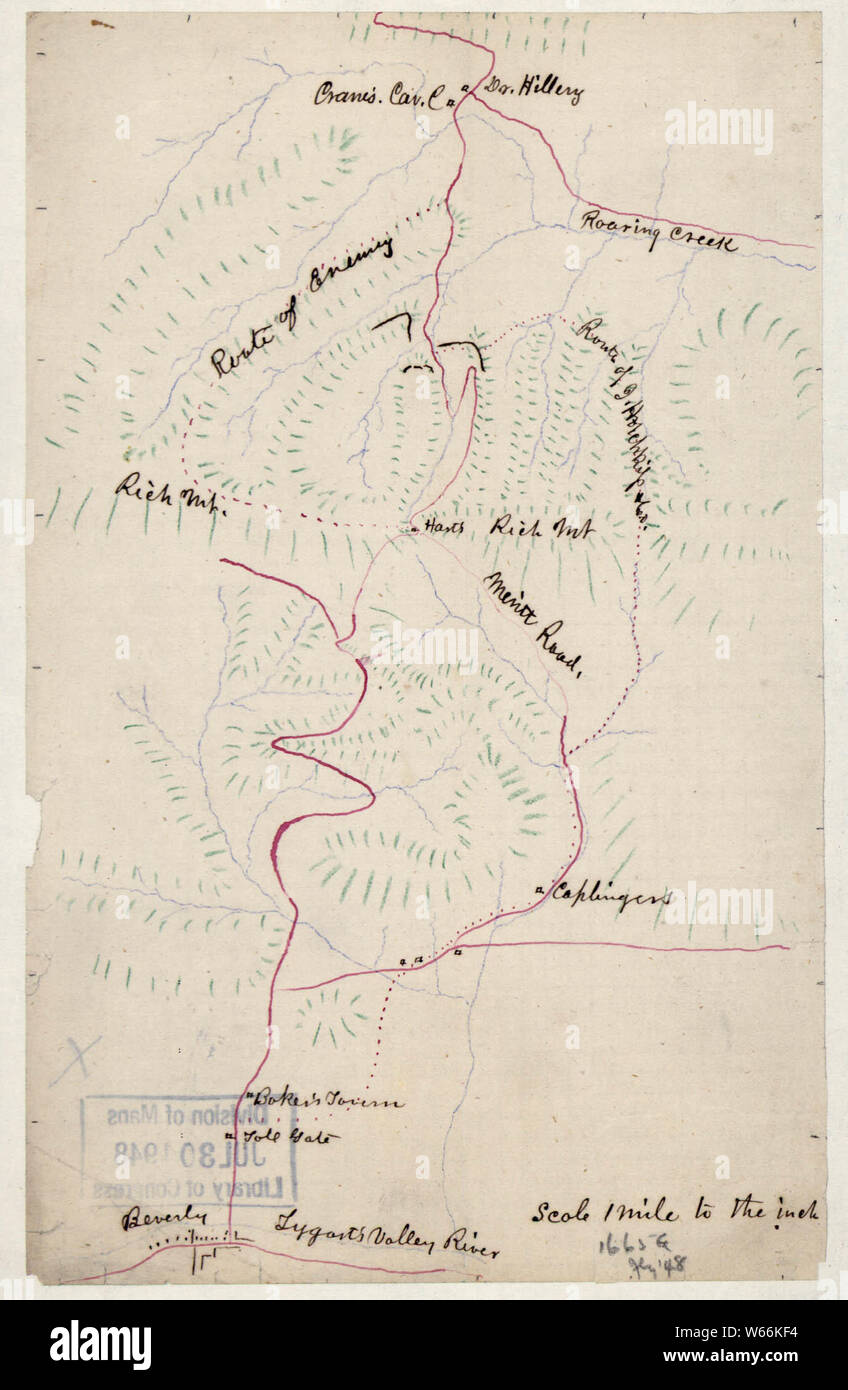 Crane's. Cav. C
Dr. Hillery
Roaring Creek
Route of Enemy
Route of J. Hotchkiss
Rich Mt.
Harts
Rich Mt
Meritt Road.
Caplingers
Baker's Tavern
Toll Gate
Division of Maps
JUL 30 1948
Library of Congress
Beverly
Tygarts Valley River
Scale 1 mile to the inch
alamy
alamy
alamy
alamy
a
a
a
a
a
alamy
Image ID: W66KF4
www.alamy.com